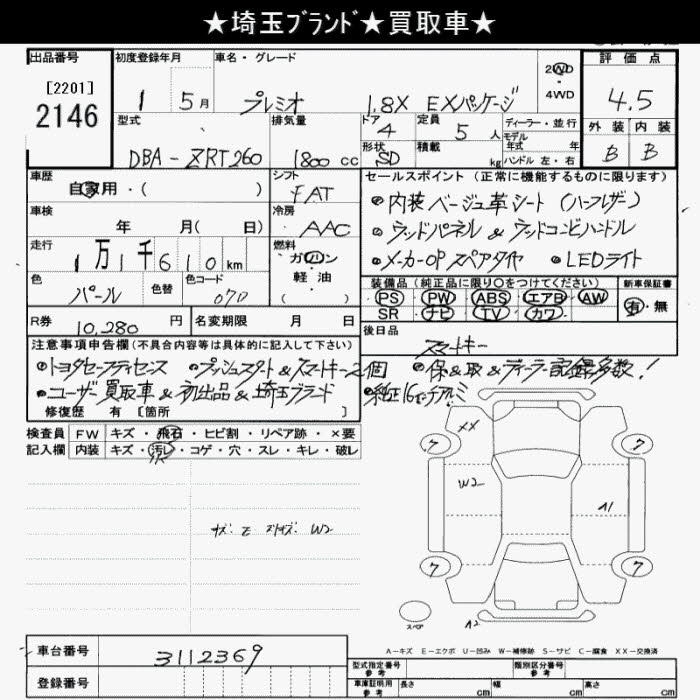 ★埼玉ﾌﾞﾗﾝﾄﾞ★買取車★
出品番号
[2201]
2146
初度登録年月
1 5月
車名・グレード
プレミオ 1.8X EXパッケージ
2WD
・
4WD
評価点
4.5
外装 内装
B B
型式
DBA-ZRT260
排気量
1800 cc
ドア
4
形状
SD
定員
5 人
積載
kg
ディーラー・並行
モデル
年式 年
ハンドル 左・右
車歴
自家用・( )
シフト
FAT
車検
年 月( 日)
冷房
AAC
走行
1万1千610km
燃料
ガソリン
・
軽油
( )
色
パール
色替
色コード
070
R券
10,280 円
名変期限 月 日
セールスポイント(正常に機能するものに限ります)
●内装ベージュ革シート(ハーフレザー)
●ウッドパネル&ウッドコンビハンドル
●メーカーOPスペアタイヤ ●LEDライト
装備品(純正品に限り○をつけてください)
PS PW ABS エアB AW
SR ナビ TV カワ
新車保証書
有・無
後日品
スマートキー
注意事項申告欄(不具合内容等は具体的に記入して下さい)
●トヨタセーフティセンス ●プッシュスタート&スマートキー2個 ●保&取&ディーラー記録多数!
●ユーザー買取車&初出品&埼玉ブランド ●純正16インチアルミ
修復歴 有 [箇所 ]
検査員
記入欄
FW キズ・飛石・ヒビ割・リペア跡・×要
内装 キズ・汚レ・コゲ・穴・スレ・キレ・破レ
W2
ワ
ワ
XX
W2
A1
ワ
ワ
スペア
A2
A-キズ E-エクボ U-凹み W-補修跡 S-サビ C-腐食 XX-交換済
車台番号
3112369
登録番号
型式指定番号
参考
類別区分番号
参考
車庫証明用
参考
長さ cm 幅 cm 高さ cm